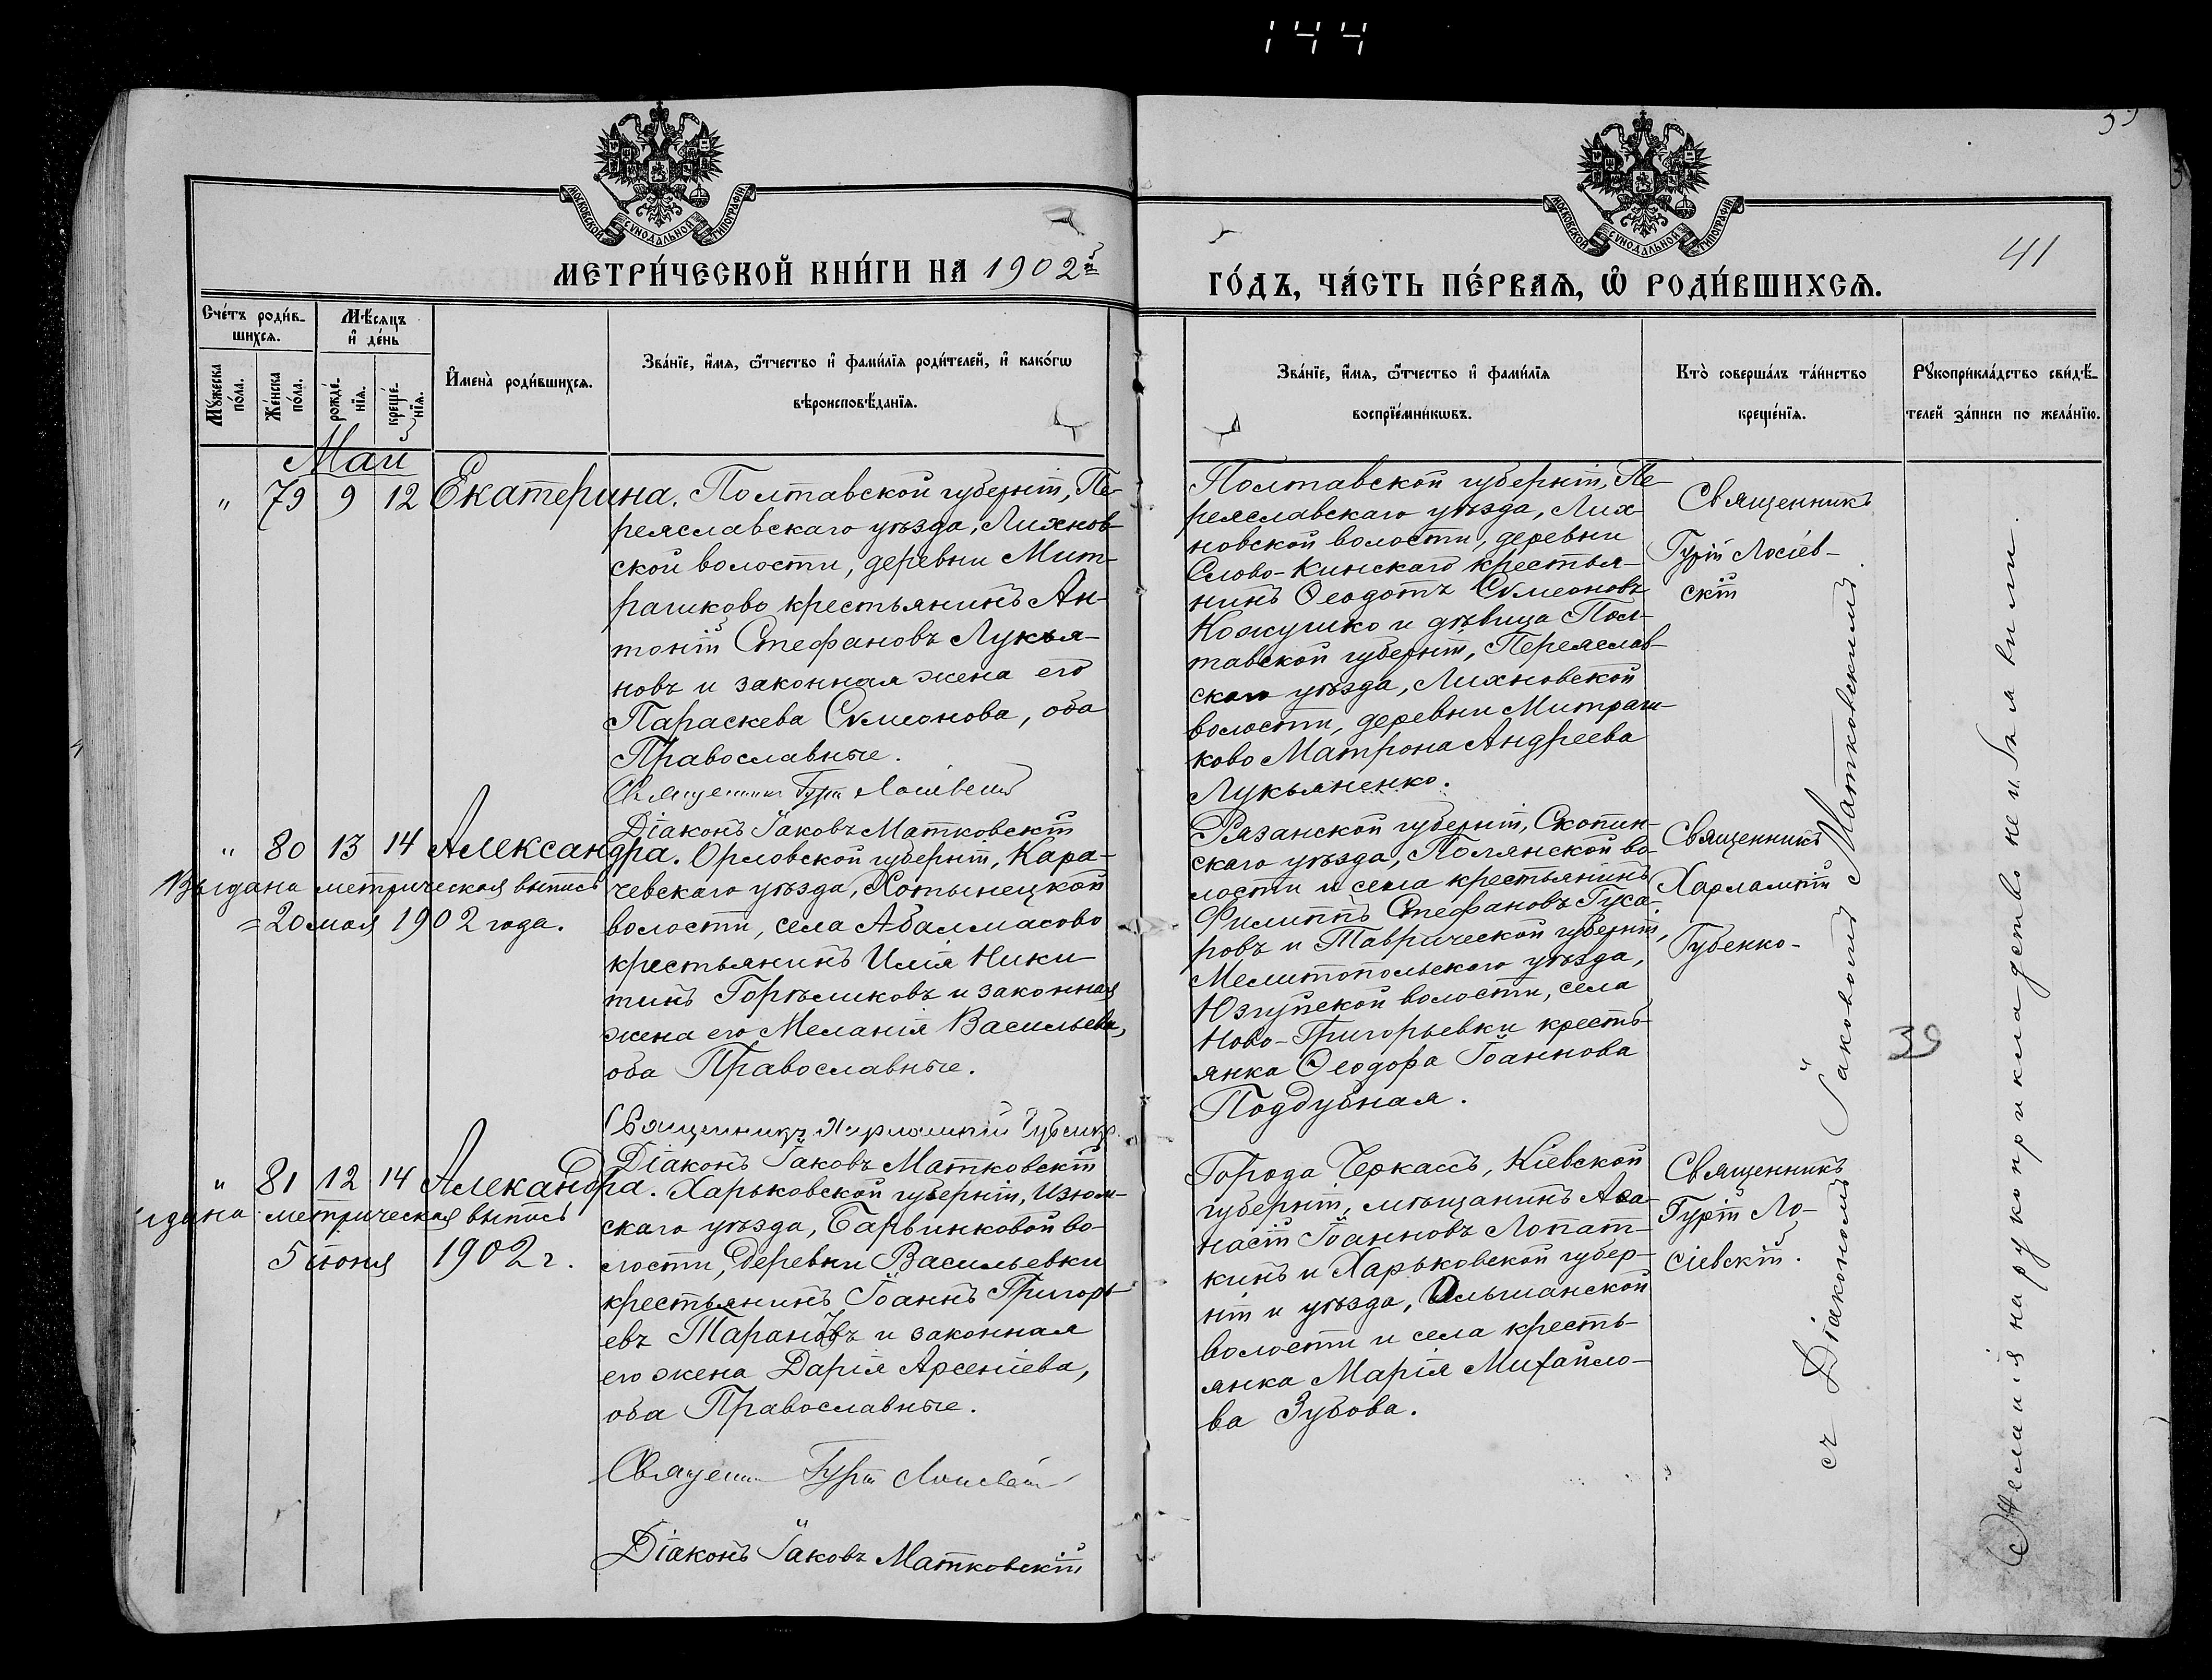 144
39
41
МОСКОВСКОЙ СѴНОДАЛЬНОЙ ТИПОГРАФІИ
МОСКОВСКОЙ СѴНОДАЛЬНОЙ ТИПОГРАФІИ
МЕТРИ́ЧЕСКОЙ КНИ́ГИ НА 1902й
ГО́ДЪ, ЧА́СТЬ ПЕ́РВАѦ, Ѽ РОДИ́ВШИХСѦ.
Счéтъ роди́в-
шихсѧ.
Мѣ́сѧцъ
и҆ де́нь
Мꙋ́жеска
по́ла.
Же́нска
по́ла.
рожде́-
нїѧ.
креще́-
нїѧ.
И҆мена̀ роди́вшихсѧ.
Зва́нїе, и҆́мѧ, ѻ҆́тчество и҆ фами́лїѧ роди́телей, и҆ како́гѡ
вѣроисповѣ́данїѧ.
Зва́нїе, и҆́мѧ, ѻ҆́тчество и҆ фами́лїѧ
воспрїе́мникѡвъ.
Кто̀ соверша́лъ та́инство
креще́нїѧ.
Рꙋкоприкла́дство свидѣ́-
телей за́писи по жела́нїю.
Май
" 79 9 12 Екатерина.
Полтавской губерніи, Пе-
реяславскаго уѣзда, Лихнов-
ской волости, деревни Мит-
рашково крестьянинъ Ан-
тоній Стефановъ Лукья-
новъ и законная жена его
Параскева Сѵмеонова, оба
Православные.
Священникъ Гурій Лосіевскій
Діаконъ Іаковъ Матковскій
Полтавской губерніи, Пе-
реяславскаго уѣзда, Лих-
новской волости, деревни
Слово-Кинскаго крестья-
нинъ Ѳеодотъ Сѵмеоновъ
Кожушко и дѣвица Пол-
тавской губерніи, Переяслав-
скаго уѣзда, Лихновской
волости, деревни Митраш-
ково Матрона Андреева
Лукьяненко.
Священникъ
Гурій Лосіев-
скій
" 80 13 14 Александра.
Выдана метрическая выпись
=20 мая 1902 года.
Орловской губерніи, Кара-
чевскаго уѣзда, Хотынецкой
волости, села Абалмасово
крестьянинъ Илія Ники-
тинъ Горѣликовъ и законная
жена его Меланія Васильева,
оба Православные.
Священникъ Харлампій Губенко.
Діаконъ Іаковъ Матковскій
Рязанской губерніи, Скопин-
скаго уѣзда, Полянской во-
лости и села крестьянинъ
Филиппъ Стефановъ Гуса-
ровъ и Таврической губерніи,
Мелитопольскаго уѣзда,
Юзкуйской волости, села
Ново-Григорьевки кресть-
янка Ѳеодора Іоаннова
Поддубная.
Священникъ
Харлампій
Губенко-
" 81 12 14 Алекандра.
ыдана метрическая выпись
5 іюня 1902 г.
Харьковской губерніи, Изюм-
скаго уѣзда, Барвинковой во-
лости, деревни Васильевки
крестьянинъ Іоаннъ Григорь-
евъ Тарановъ и законная
его жена Дарія Арсеніева,
оба Православные.
Священникъ Гурій Лосіевскій
Діаконъ Іаковъ Матковскій
Города Черкассъ, Кіевской
губерніи, мѣщанинъ Аѳа-
насій Іоанновъ Лопат-
кинъ и Харьковской губер-
ніи и уѣзда, Ольшанской
волости и села кресть-
янка Марія Михайло-
ва Зубова.
Священникъ
Гурій Ло-
сіевскій.
съ Діакономъ Іаковомъ Матковскимъ.
39
Желанія на рукоприкладство не изъявили.